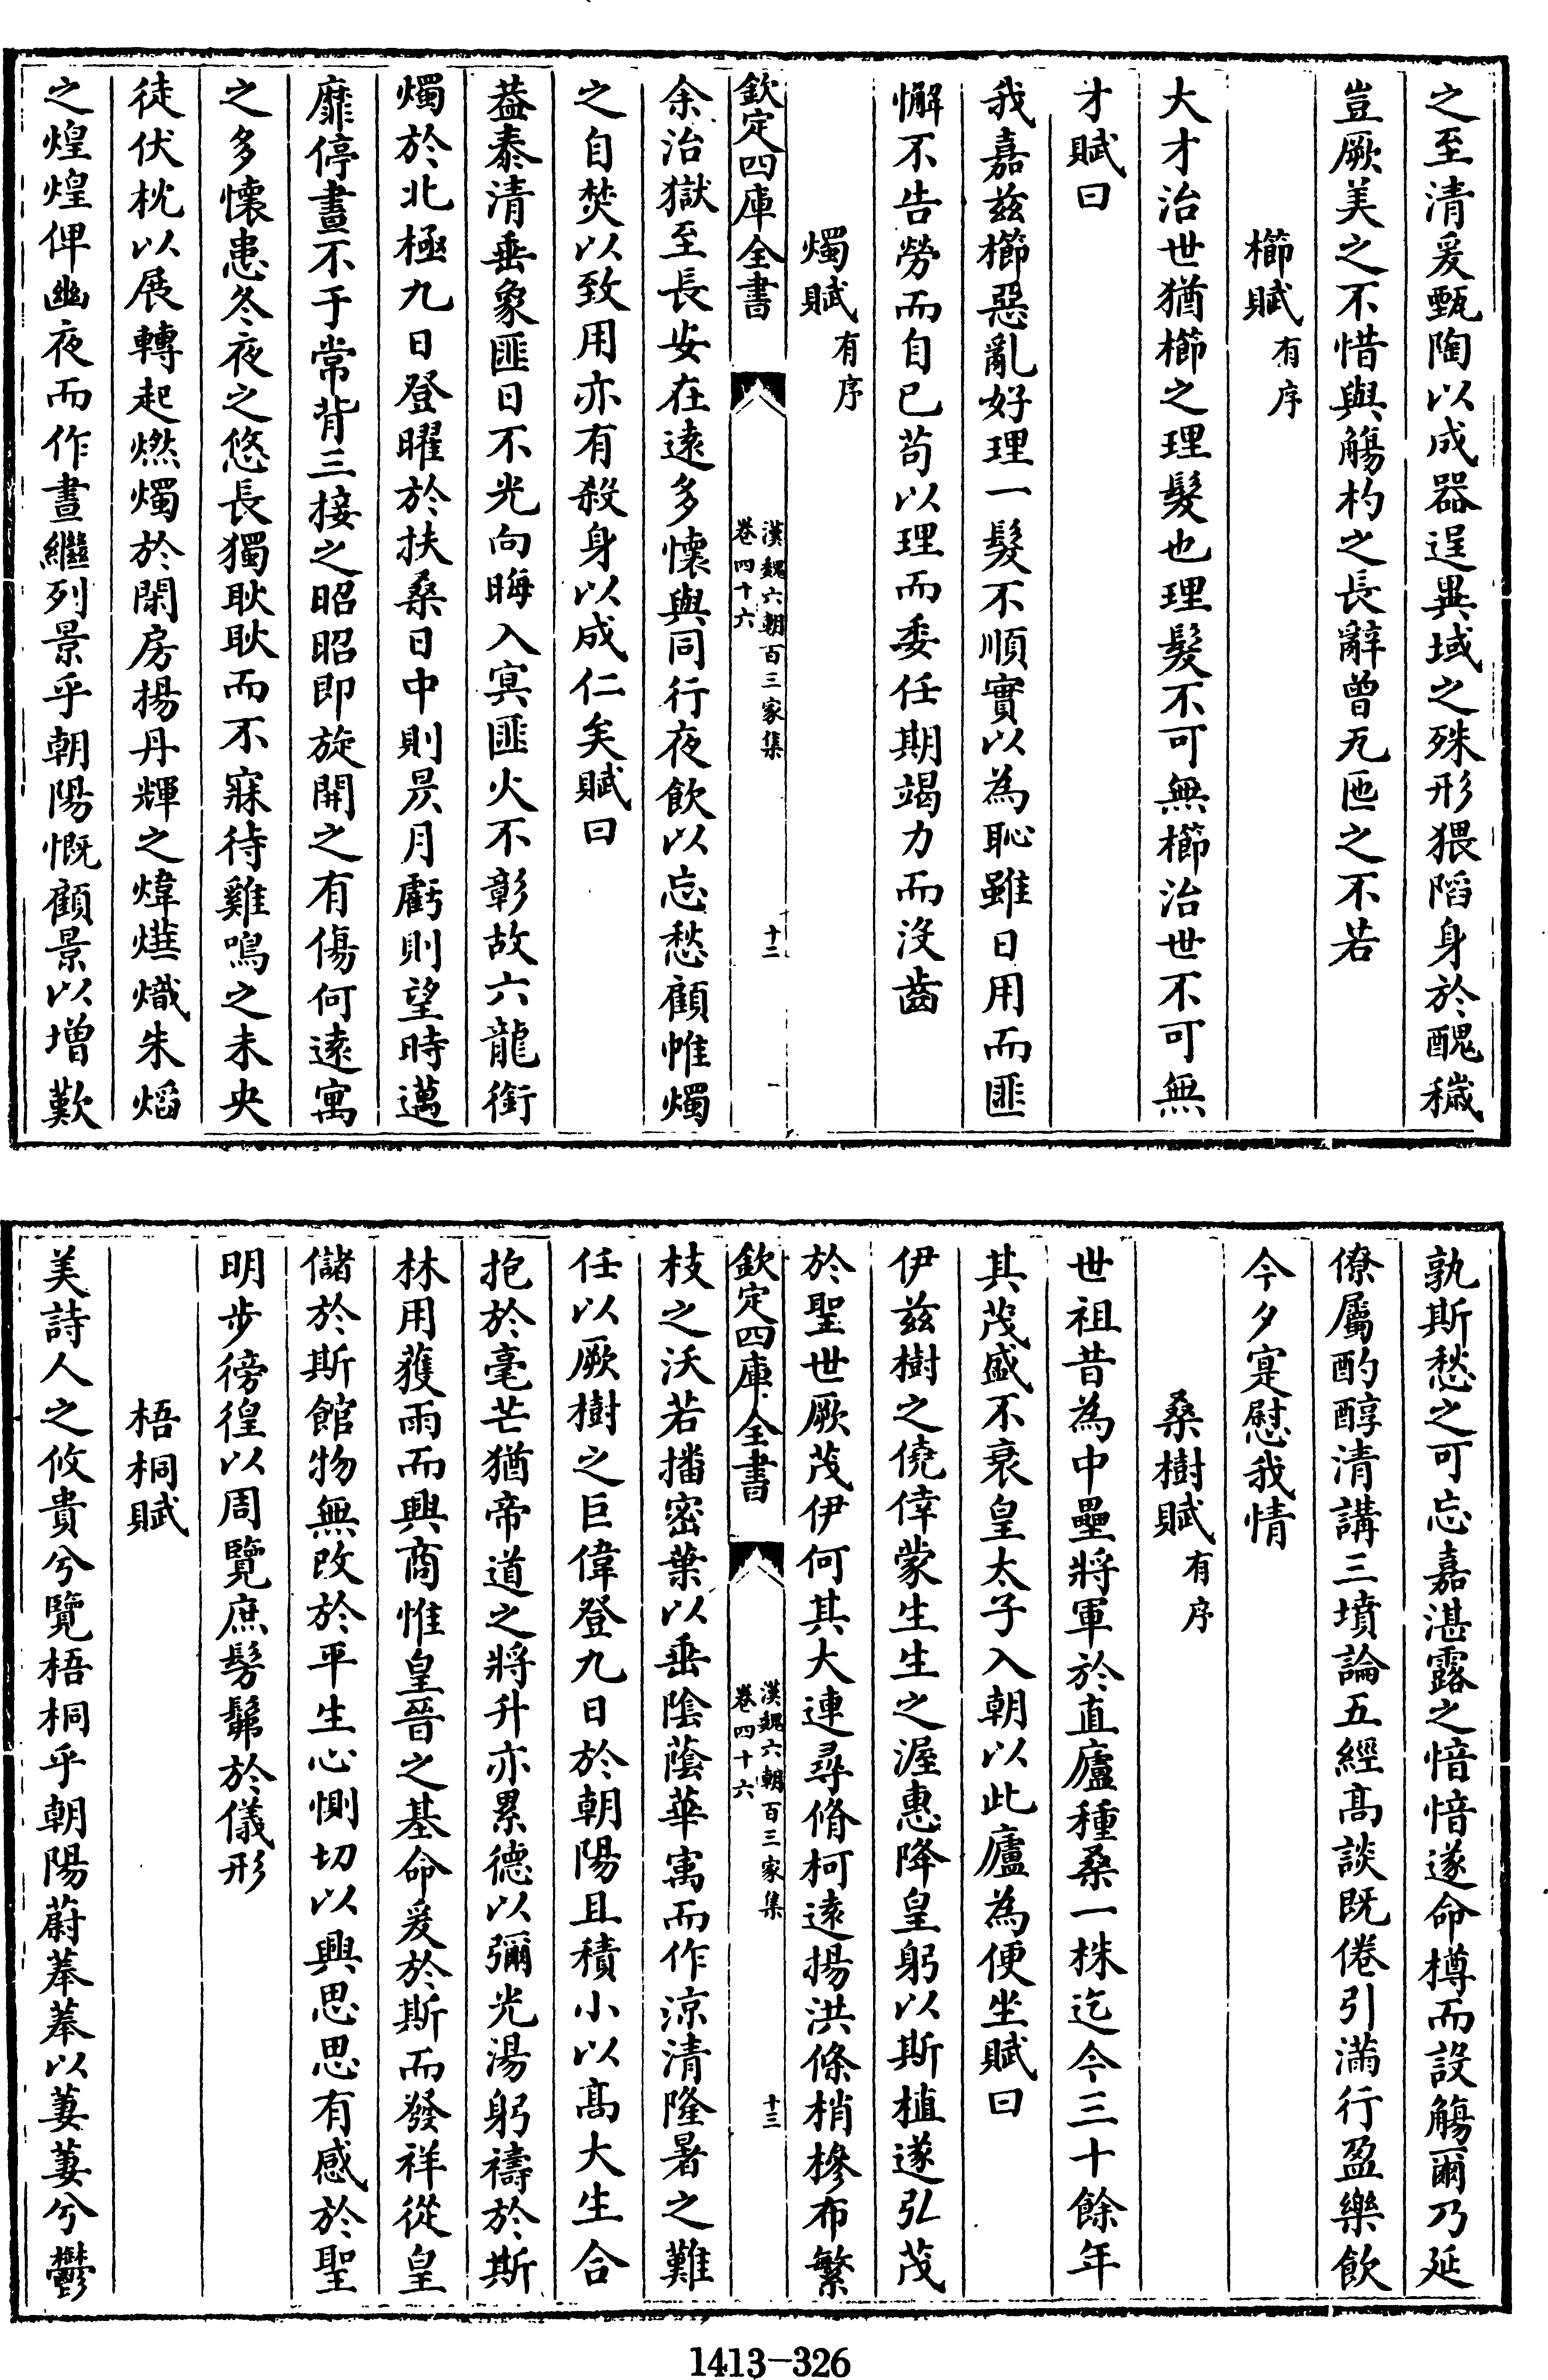 之至清爰甄陶以成器逞異域之殊形猥陷身於醜穢
豈厥美之不惜與觴杓之長辭曾瓦匜之不若
櫛賦有序
大才治世猶櫛之理髮也理髮不可無櫛治世不可無
才賦曰
我嘉茲櫛惡亂好理一髮不順實以為恥雖日用而匪
懈不告勞而自已苟以理而委任期竭力而没齒
燭賦有序
欽定四庫全書
漢魏六朝百三家集
卷四十六
十二
余治獄至長安在遠多懷與同行夜飲以忘愁顧帷燭
之自焚以致用亦有殺身以成仁矣賦曰
蓋泰清垂象匪日不光向晦入冥匪火不彰故六龍銜
燭於北極九日登曜於扶桑日中則昃月虧則望時邁
靡停晝不于常背三接之昭昭即旋開之有傷何遠寓
之多懷患冬夜之悠長獨耿耿而不寐待雞鳴之未央
徒伏枕以展轉起燃燭於閑房揚丹輝之煒爗熾朱熖
之煌煌俾幽夜而作晝繼列景乎朝陽慨顧景以增歎
孰斯愁之可忘嘉湛露之愔愔遂命樽而設觴爾乃延
僚屬酌醇清講三墳論五經高談既倦引滿行盈樂飲
今夕寔慰我情
桑樹賦有序
世祖昔為中壘將軍於直廬種桑一株迄今三十餘年
其茂盛不衰皇太子入朝以此廬為便坐賦曰
伊茲樹之僥倖蒙生生之渥惠降皇躬以斯植遂弘茂
於聖世厥茂伊何其大連尋脩柯遠揚洪條梢槮布繁
欽定四庫全書
漢魏六朝百三家集
卷四十六
十三
枝之沃若播密葉以垂陰蔭華寓而作凉清隆暑之難
任以厥樹之巨偉登九日於朝陽且積小以高大生合
抱於毫芒猶帝道之將升亦累德以彌光湯躬禱於斯
林用獲雨而興商惟皇晉之基命爰於斯而發祥從皇
儲於斯館物無改於平生心惻切以興思思有感於聖
明步徬徨以周覽庶髣髴於儀形
梧桐賦
美詩人之攸貴兮覽梧桐乎朝陽蔚菶菶以萋萋兮鬱
1413-326